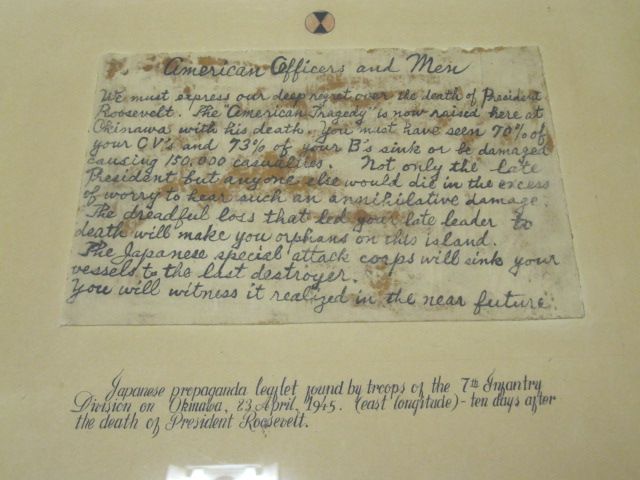 American Officers and Men
We must express our deep regret over the death of President
Roosevelt. The "American Tragedy" is now raised here at
Okinawa with his death. You must have seen 70% of
your CV's and 73% of your B's sink or be damaged
causing 150.000 casualties. Not only the late
President but anyone else would die in the excess
of worry to hear such an annihilative damage.
The dreadful loss that led your late leader to
death will make you orphans on this island.
The Japanese special attack corps will sink your
vessels to the last destroyer.
You will witness it realized in the near future.
Japanese propaganda leaflet found by troops of the 7th Infantry
Division on Okinawa, 23 April, 1945. (east longitude) - ten days after
the death of President Roosevelt.